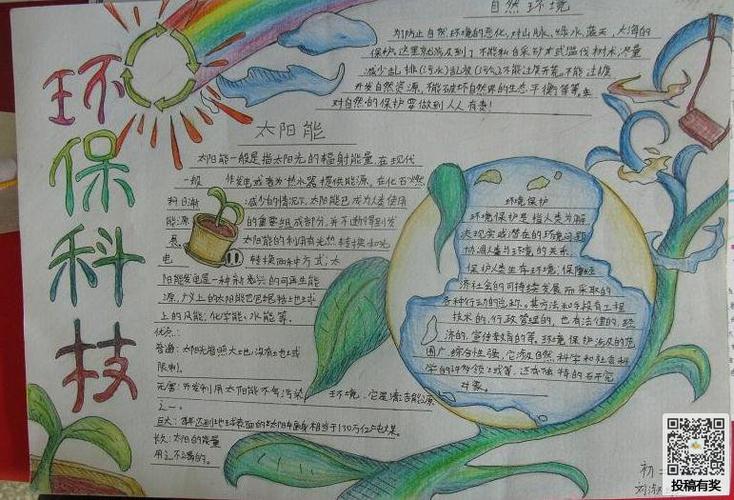 环保科技
自然环境
为防止自然环境的恶化,对山脉、绿水、蓝天、大海的
保护。这里就涉及到了不能私自采矿
滥伐树木,尽量
减少乱排(污水)乱放(污气)不能过度开荒,不能过度
开发自然资源,不能破坏自然界的生态平衡等等。
对自然的保护要做到人人有责!
太阳能
太阳能一般是指太阳光的辐射能量,在现代
一般 作发电或者为热水器提供能源。在化石燃
料日渐 减少的情况下,太阳能已成为人类使用
能源 的重要组成部分,并不断得到发
展 太阳能的利用有光热转换和光
电 转换两种方式,太
阳能发电是一种新兴的可再生能
源,广义上的太阳能也包括地球
上的风能,化学能,水能等。
优点:
普遍:太阳光普照大地,没有地域
限制。
无害:开发利用太阳能不会污染 环境,它是清洁能源
之一。
巨大:每年到达地球表面的太阳
相当于130万亿
长久:太阳的能量
用之不竭的。
环境保护
环境保护是指人类为解
决现实或潜在的环境问题
协调人类与环境的关系,
保护人类生存环境、保障经
济社会的可持续发展而采取的
各种行动的总称。其方法和手段有工程
技术的、行政管理的,也有法律的、经
济的、宣传教育的等。环境保护涉及的范
围广、综合性强,它涉及自然科学和社会科
学的许多领域等,还有独特的研究
对象。
初
投稿有奖